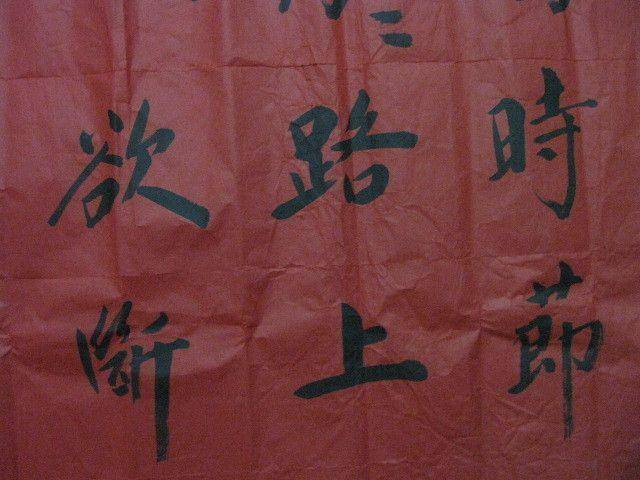 時節
路上
欲斷